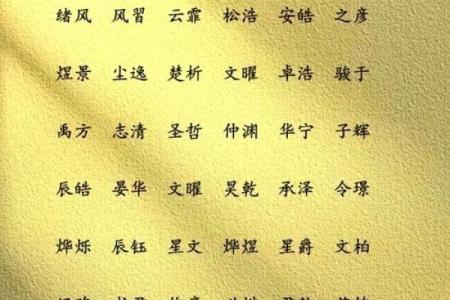 绪风 风習 云霏 松浩 安皓 之彦
煜景 尘逸 楚析 文曜 卓浩 骏于
禹方 志清 圣哲 仲渊 华宁 子辉
辰皓 晏华 文曜 昊乾 承泽 令璟
烨烁 辰钰 星文 烨煜 星爵 文柏